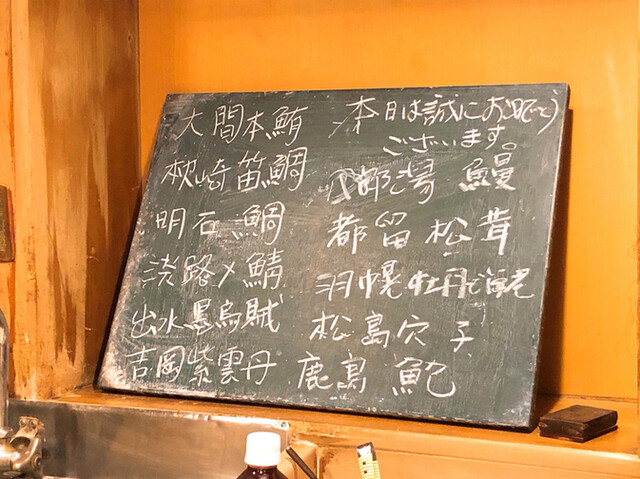 大間本鮪
枕崎笛鯛
明石鯛
淡路〆鯖
出水墨烏賊
吉岡紫雲丹
本日は誠におめでとう
ございます。
鰻
都留松茸
羽幌牡丹海老
松島穴子
鹿島鮑